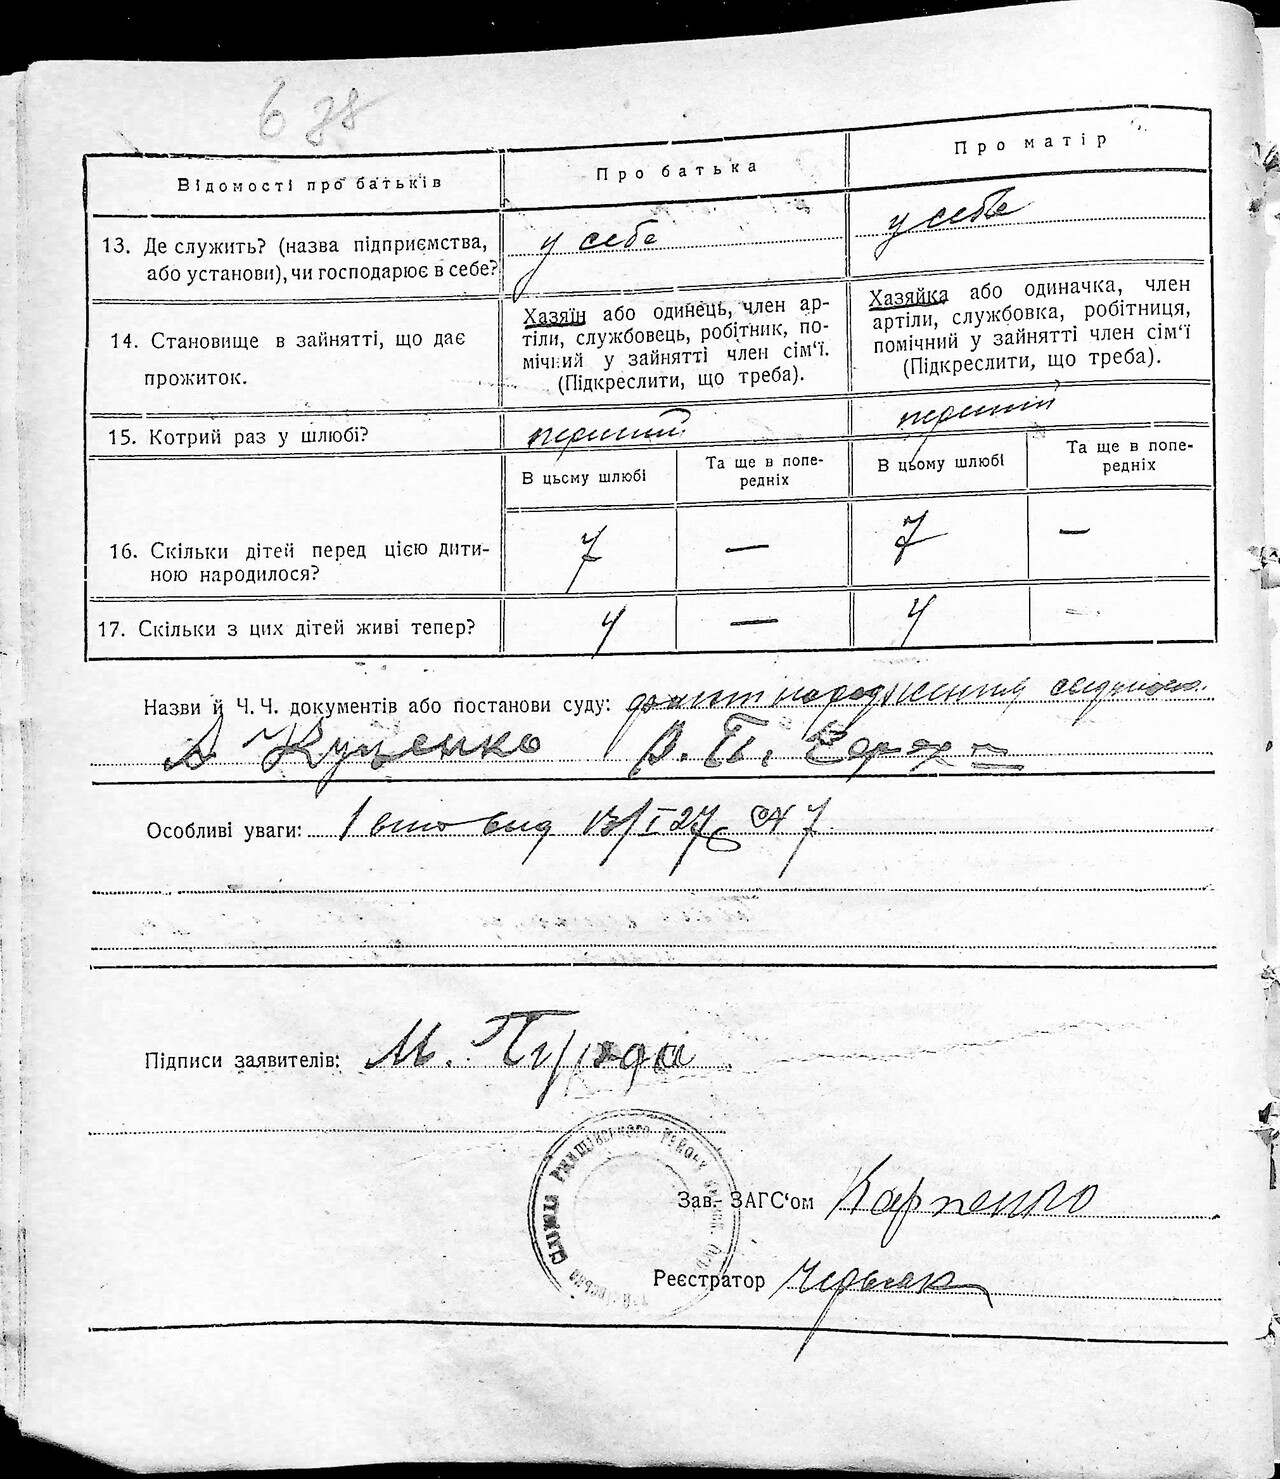 6 78
Відомості про батьків
Про батька
Про матір
13. Де служить? (назва підприємства,
або установи), чи господарює в себе?
у себе
у себе
14. Становище в зайнятті, що дає
прожиток.
Хазяїн або одинець, член ар-
тіли, службовець, робітник, по-
мічний у зайнятті член сім'ї.
(Підкреслити, що треба).
Хазяйка або одиначка, член
артіли, службовка, робітниця,
помічний у зайнятті член сім'ї
(Підкреслити, що треба).
15. Котрий раз у шлюбі?
перший
перший
В цьому шлюбі
Та ще в попе-
редніх
В цьому шлюбі
Та ще в попе-
редніх
16. Скільки дітей перед цією дити-
ною народилося?
7 — 7 —
17. Скільки з цих дітей живі тепер?
4 — 4 —
Назви й Ч. Ч. документів або постанови суду: факт народження
Куценко В. П.
Особливі уваги: 13/I 27 № 7
Підписи заявителів: М.
Ржищівського району
Зав. ЗАГС'ом Карпенко
Реєстратор